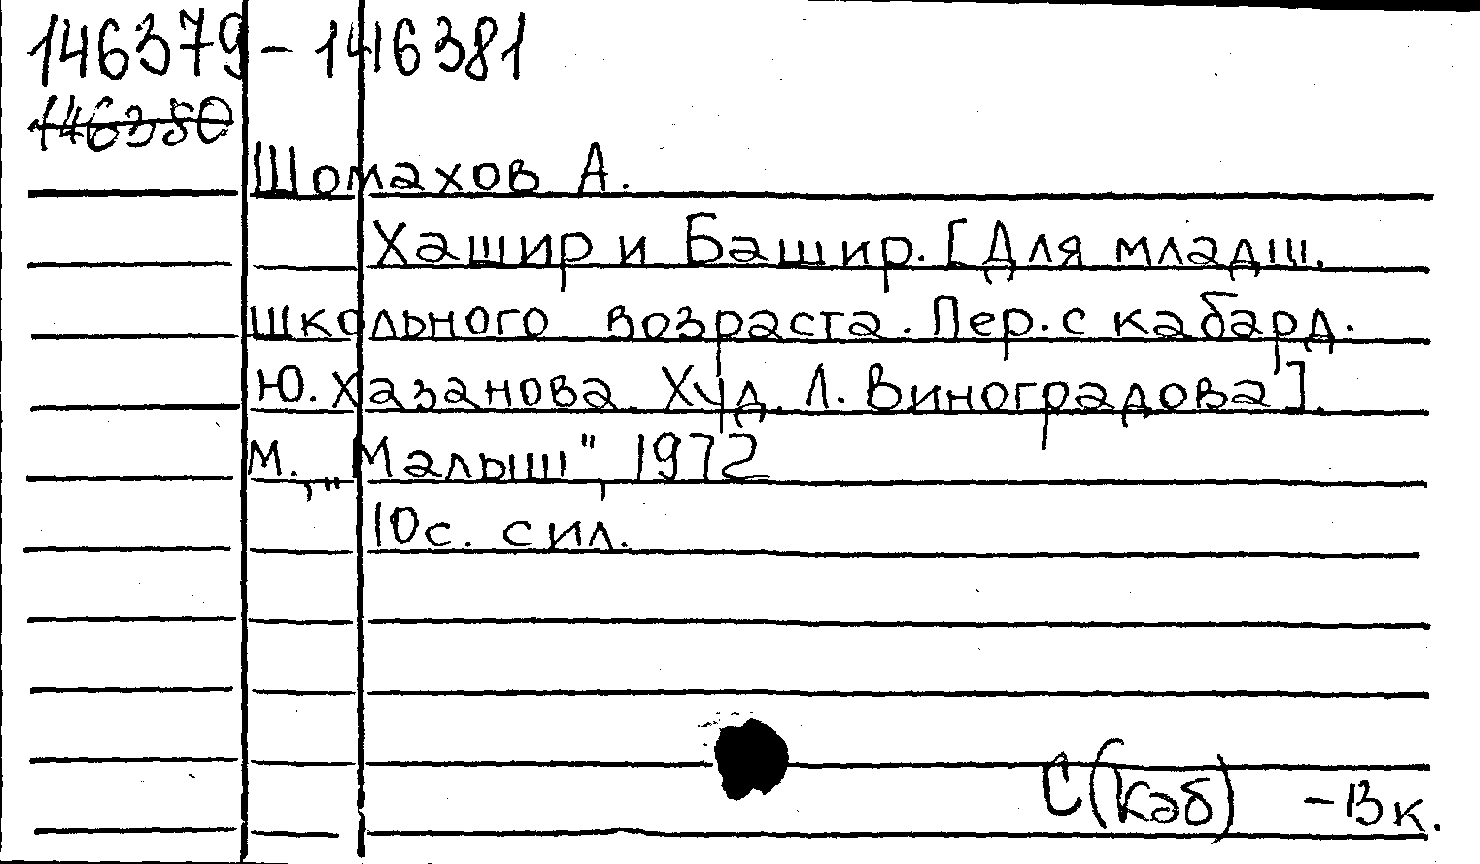 146379 - 146381
146380
Шомахов А.
Хашир и Башир. [Для младш.
школьного возраста. Пер. с кабард.
Ю. Хазанова. Худ. Л. Виноградова].
М., „Малыш", 1972
10с. с ил.
С(Каб) - Вк.